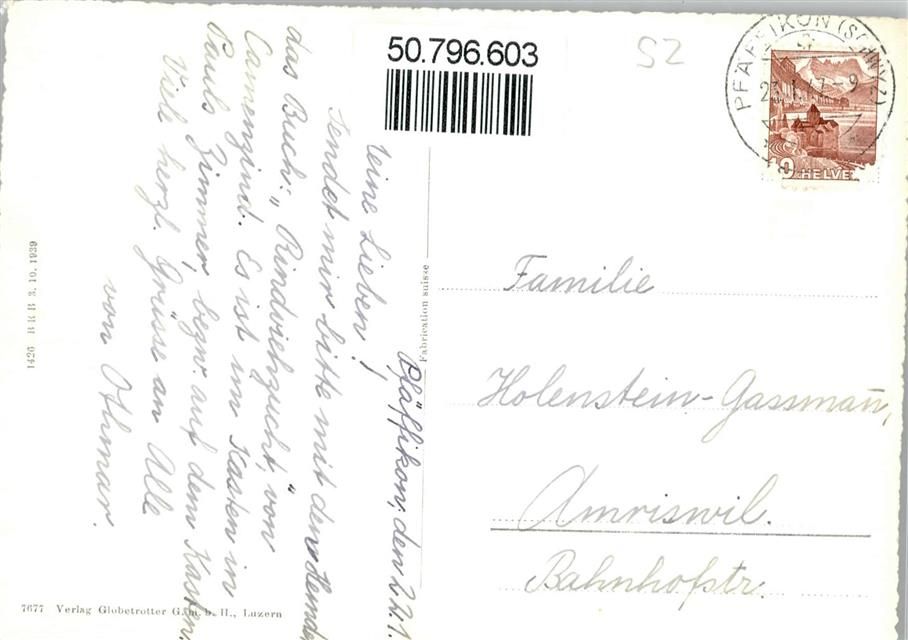 50.796.603
SZ
PFÄFFIKON (SCHWYZ)
10 HELVE
Pfäffikon, den 22.1.
Meine Lieben!
Sendet mir bitte mit den Hemd
das Buch: „Rindviehzucht" von
Camenzind. Es ist im Kasten in
Pauls Zimmer, bezw. auf dem Kasten.
Viele herzl. Grüsse an Alle
von Othmar.
Familie
Holenstein-Gassmañ,
Amriswil.
Bahnhofstr.
Fabrication suisse
1426 BRB 3. 10. 1939
7677 Verlag Globetrotter G.m.b.H., Luzern